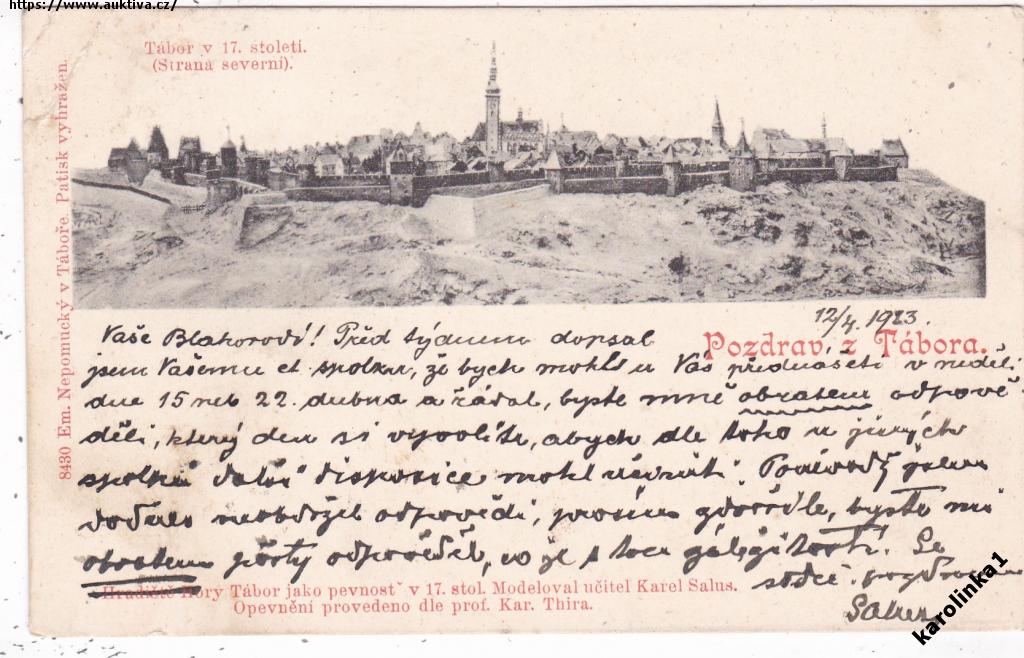 https://www.auktiva.cz/
Tábor v 17. století.
(Strana severní).
8430 Em. Nepomucký v Táboře. Patisk vyhražen.
12/4. 1923.
Pozdrav z Tábora.
Vaše Blahorodí! Před týdnem dopsal
jsem Vašemu ct. spolku, že bych mohl u Vás přednášeti v neděli
dne 15 neb 22. dubna a žádal, byste mně obratem odpově-
děli, který den si vyvolíte, abych dle toho u jiných
spolků další disposice mohl učiniti. Poněvadž jsem
dodnes neobdržel odpovědi, prosím zdvořile, byste mi
obratem pošty odpověděl, co je s tou záležitostí. Se
srdeč. pozdravem
Salus
Hradiště Hory Tábor jako pevnosť v 17. stol. Modeloval učitel Karel Salus.
Opevnění provedeno dle prof. Kar. Thira.
karolinka1